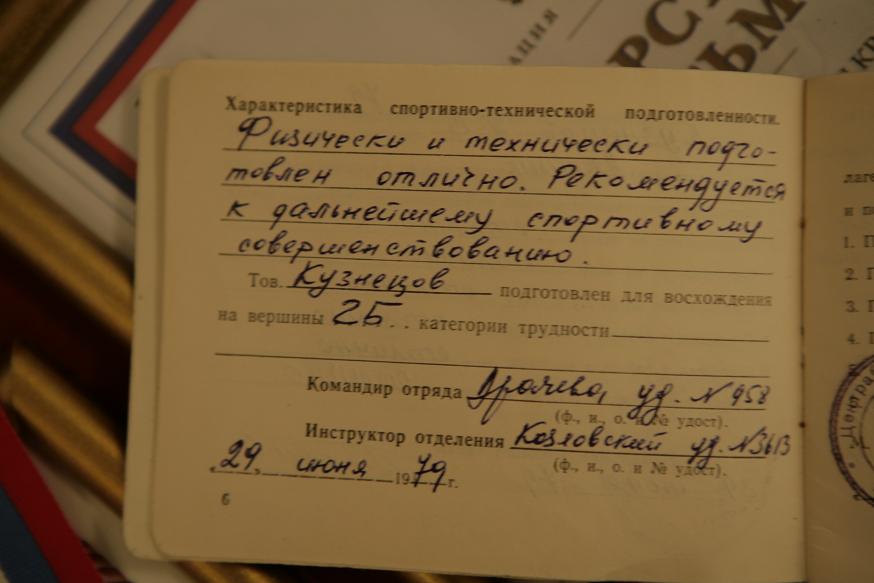 АЦИЯ
Характеристика спортивно-технической подготовленности.
Физически и технически подго-
товлен отлично. Рекомендуется
к дальнейшему спортивному
совершенствованию.
Тов. Кузнецов подготовлен для восхождения
на вершины 2Б . . категории трудности
Командир отряда уд. № 958
(ф., и., о. и № удост).
Инструктор отделения Козловский уд. №
(ф., и., о. и № удост).
„29„ июня 1979 г.
6
лаге
и п
1. П
2. Г
3. Г
4. Г